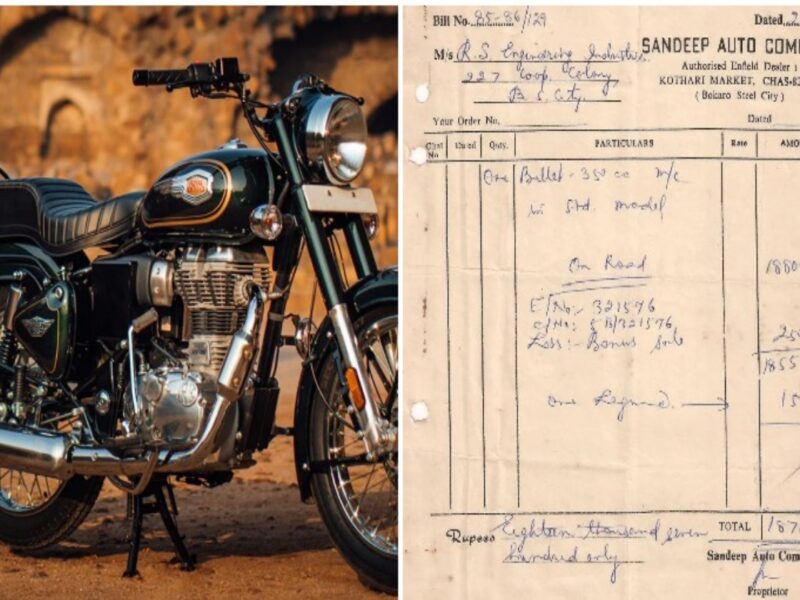 Bill No. 85-86/129
Dated
SANDEEP AUTO COM
Authorised Enfield Dealer :
KOTHARI MARKET, CHAS-82
( Bokaro Steel City )
M/s R.S. Engineering Industries
227 Coop. Colony
B. S. City
Your Order No.
Dated
Chal No
Dated
Qnty.
PARTICULARS
Rate
AMO
One Bullet - 350 cc m/c
in Std. model
On Road
1880
E/No:- 321576
c/No: 5B/321576
Less:- Bonus
250
1855
one Legguard
15
Rupees Eighteen thousand seven hundred only
TOTAL 187
Sandeep Auto Com
Proprietor